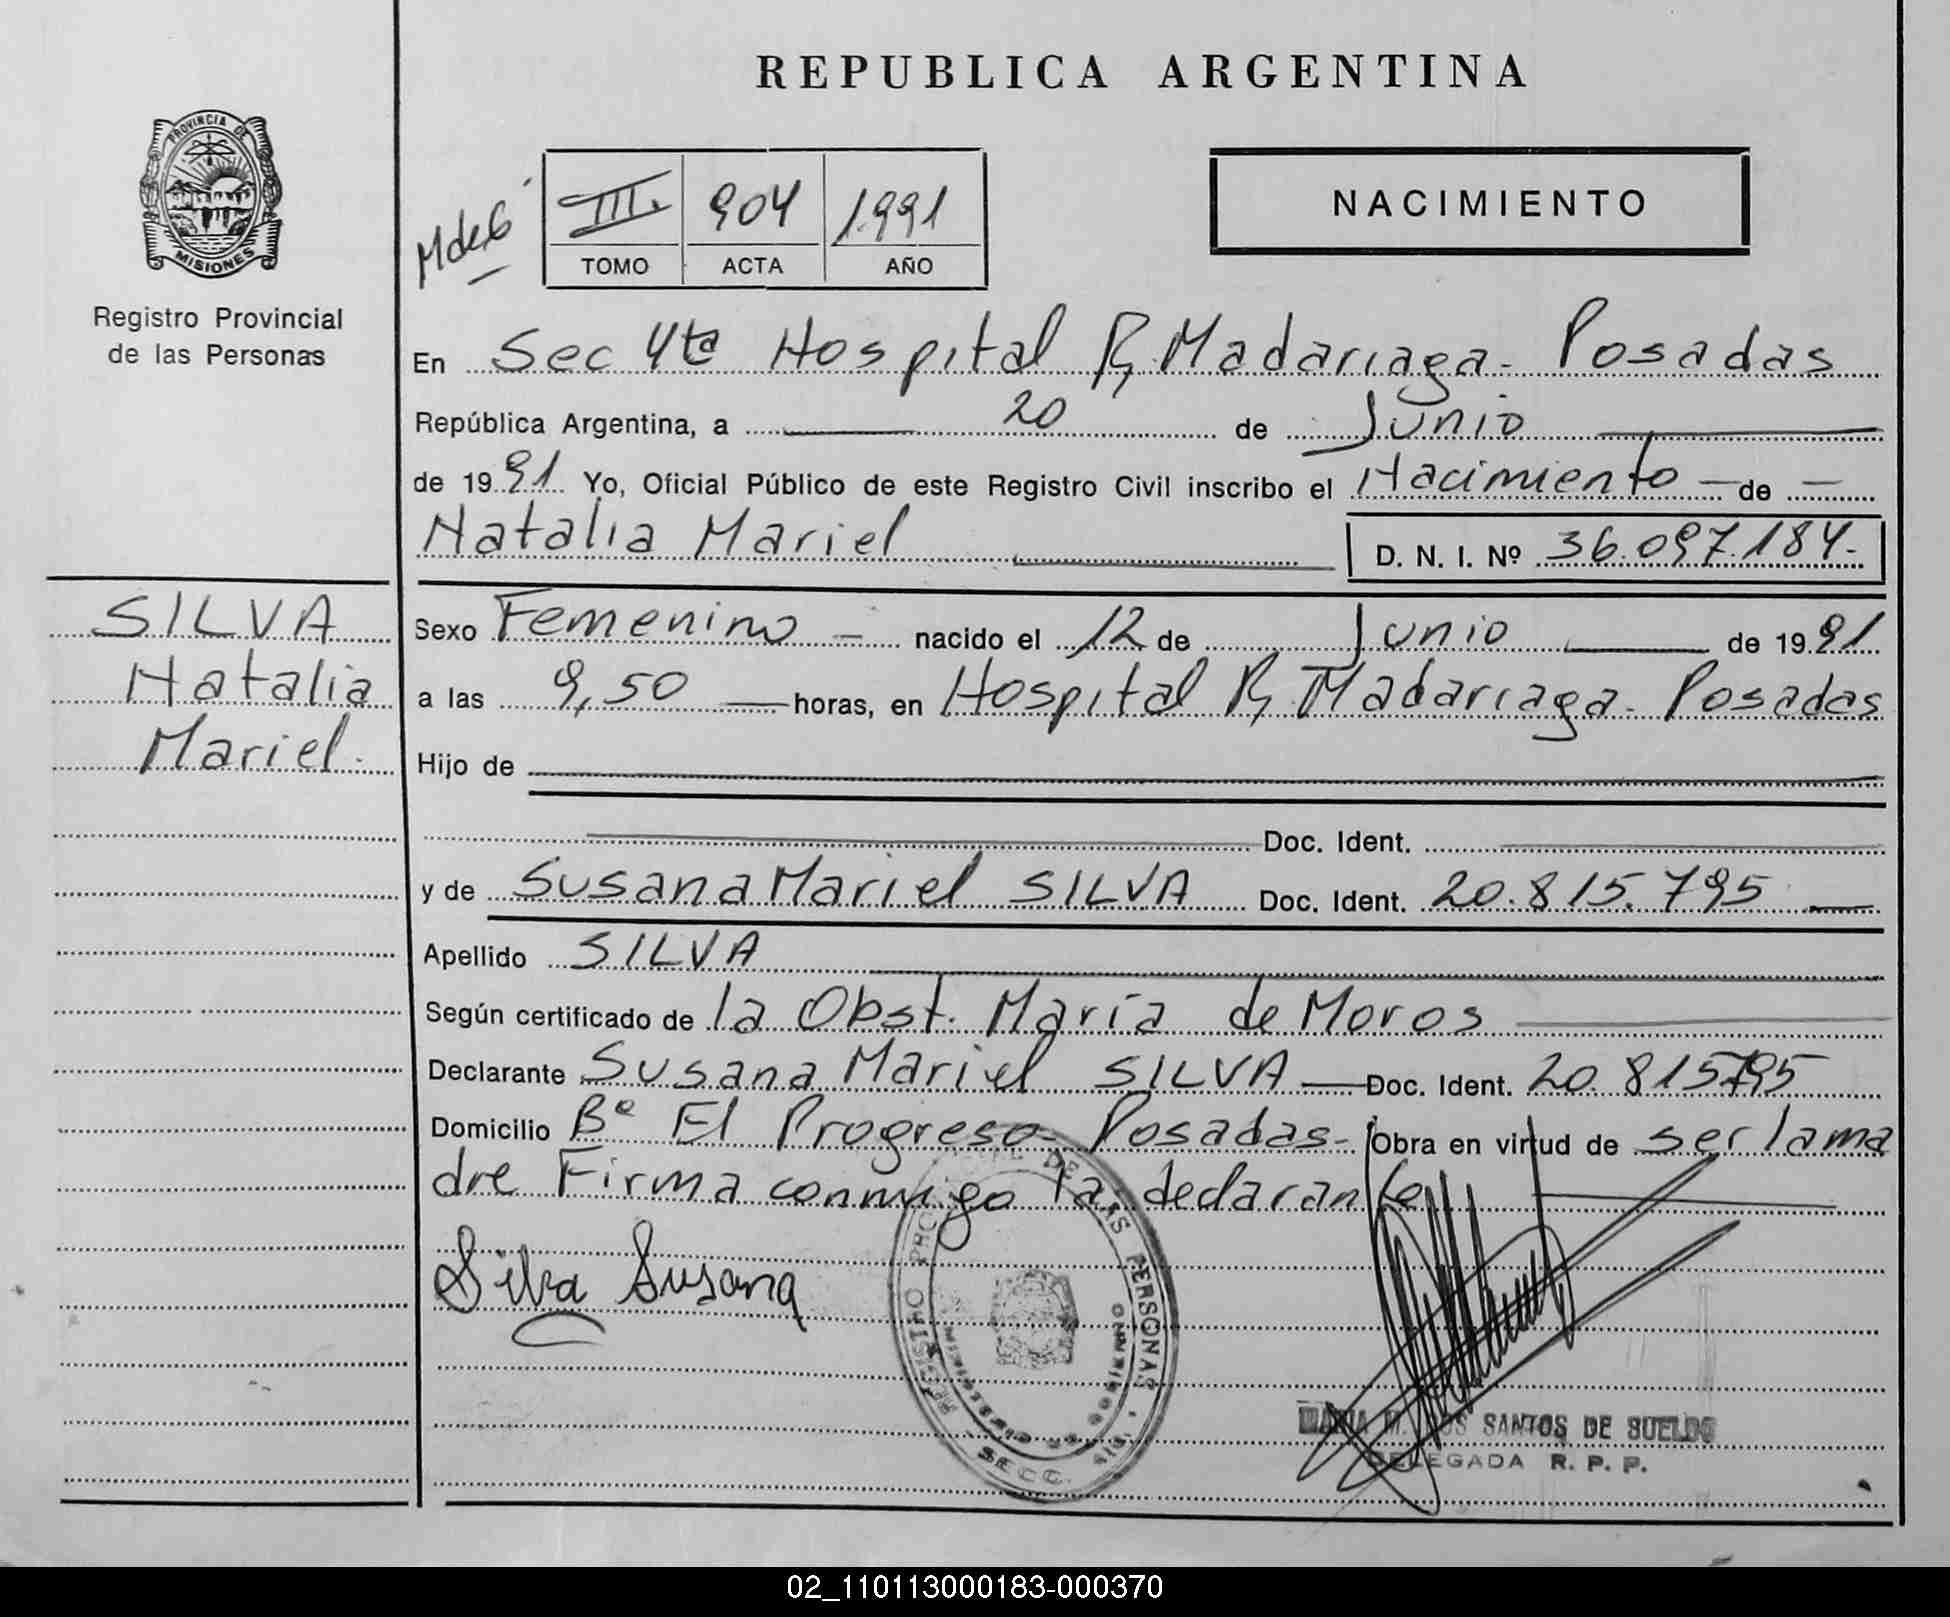 REPUBLICA ARGENTINA
PROVINCIA DE
MISIONES
Registro Provincial
de las Personas
III. 904 1.991
TOMO ACTA AÑO
NACIMIENTO
En Sec 4ta Hospital R, Madariaga - Posadas
República Argentina, a 20 de Junio
de 1991 Yo, Oficial Público de este Registro Civil inscribo el Nacimiento de
Natalia Mariel D. N. I. Nº 36.097.184.-
SILVA
Natalia
Mariel.
Sexo Femenino - nacido el 12 de Junio de 1991
a las 9,50 horas, en Hospital R, Madariaga - Posadas
Hijo de
Doc. Ident.
y de Susana Mariel SILVA Doc. Ident. 20.815.795
Apellido SILVA
Según certificado de la Obst. María de Moros
Declarante Susana Mariel SILVA Doc. Ident. 20.815795
Domicilio Bº El Progreso - Posadas - Obra en virtud de ser la ma
dre Firma conmigo la declarante
Silva Susana
REGISTRO DE LAS PERSONAS
SECC.
M. SANTOS DE SUELDO
DELEGADA R. P. P.
02_110113000183-000370